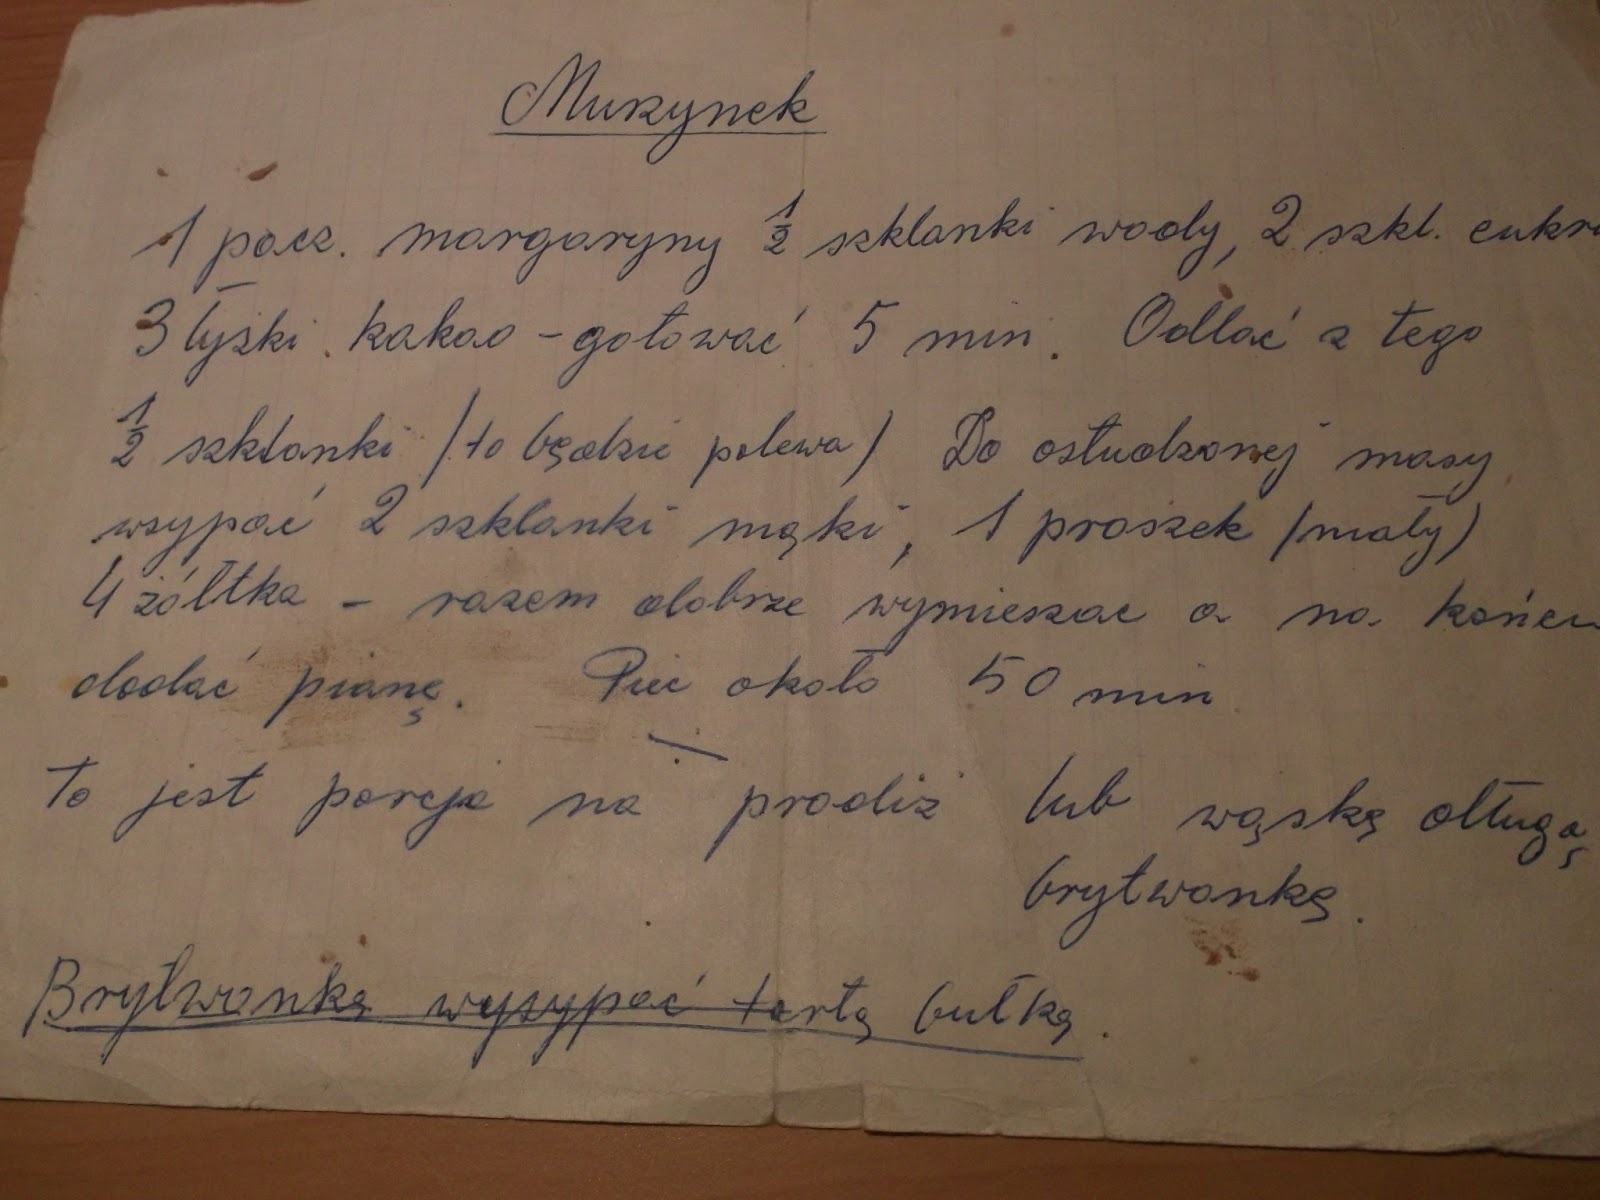 Murzynek
1 pacz. margaryny ½ szklanki wody, 2 szkl. cukru
3 łyżki kakao – gotować 5 min. Odlać z tego
½ szklanki /to będzie polewa/ Do ostudzonej masy
wsypać 2 szklanki mąki, 1 proszek /mały/
4 żółtka – razem dobrze wymieszac a na końcu
dodać pianę. Piec około 50 min
To jest porcja na prodiż lub wąską długą
brytwankę.
Brytwankę wysypać tartą bułką.